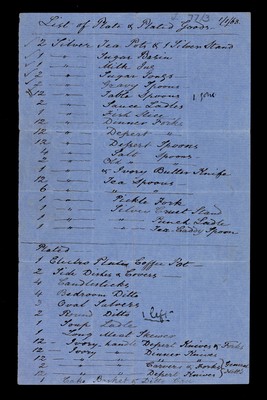 List of Plate & Plated Goods
2 Silver Tea Pots & 1 Silver Stand
1 " Sugar Basin
1 " Milk Jug
2 " Sugar Tongs
2 " Gravy Spoons
12 " Table Spoons 1 gone
2 " Sauce Ladles
1 " Fish Slice
12 " Dinner Forks
12 " Desert "
12 " Desert Spoons
4 " Salt Spoons
1 " & Ivory Butter Knife
12 " Tea Spoons
6 " "
1 " Pickle Fork
1 " Silver Cruet Stand
1 " Punch Ladle
1 " Tea Caddy Spoon
Plated
1 Electro Plated Coffee Pot
2 Side Dishes & Covers
4 Candlesticks
4 Bedroom Ditto
3 Oval Salvers
2 Round Ditto 1 left
1 Soup Ladle
1 Long Meat Skewer
12 Ivory handle Desert Knives & Forks
12 Ivory " Dinner Knives
2 " Carvers & Forks
12 " Desert Knives
1 Cake Basket &